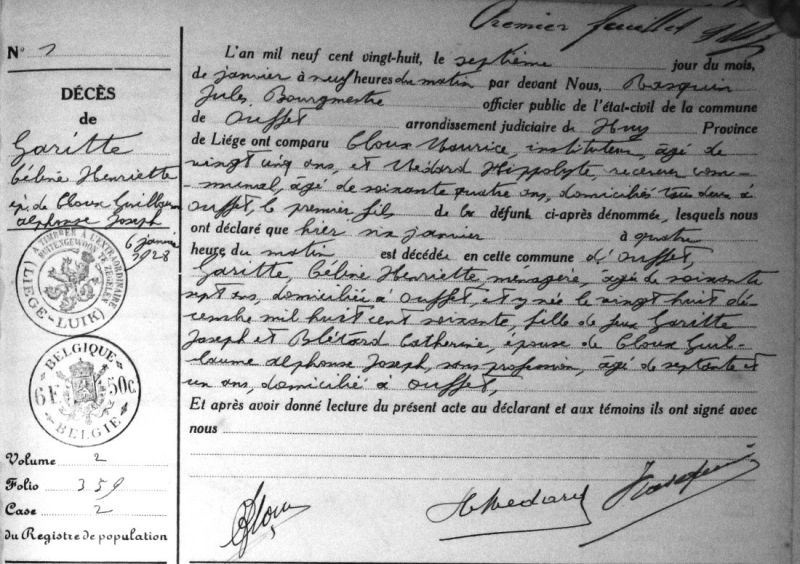 Premier feuillet
N° 1
DÉCÈS
de
Garitte
Céline Henriette
ép. de Cloux Guillaume
Alphonse Joseph
6 janvier
1928
A TIMBRER À L'EXTRAORDINAIRE
BUITENGEWOON TE ZEGELEN
(LIÉGE-LUIK)
BELGIQUE
6F. 50c.
BELGIE
Volume 2
Folio 359
Case 2
du Registre de population
L'an mil neuf cent vingt-huit, le septième jour du mois,
de janvier à neuf heures du matin par devant Nous, Rasquin
Jules, Bourgmestre officier public de l'état-civil de la commune
de Ouffet arrondissement judiciaire de Huy Province
de Liége ont comparu Cloux Maurice, instituteur, âgé de
vingt cinq ans, et Médard Hippolyte, receveur com-
munal, âgé de soixante quatre ans, domiciliés tous deux à
Ouffet, le premier fils de la défunt ci-après dénommée, lesquels nous
ont déclaré que hier six janvier à quatre
heure du matin est décédée en cette commune d'Ouffet,
Garitte, Céline Henriette ménagère, âgée de soixante
sept ans, domiciliée à Ouffet, et y née le vingt huit dé-
cembre mil huit cent soixante, fille de feux Garitte
Joseph et Blétard Catherine, épouse de Cloux Guil-
laume Alphonse Joseph, sans profession, âgé de septante et
un ans, domicilié à Ouffet,
Et après avoir donné lecture du présent acte au déclarant et aux témoins ils ont signé avec
nous
Cloux
H Médard
Rasquin